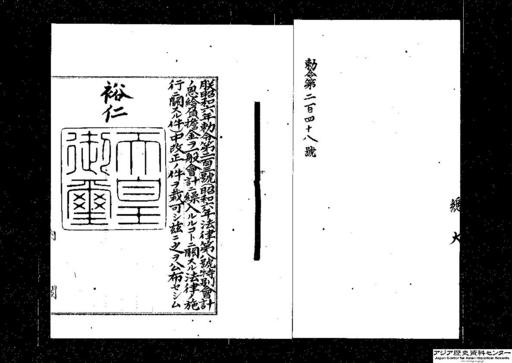 勅令第二百四十八號
總
大
朕昭和六年勅令第二百三號（昭和六年法律第八號特別會計
ノ恩給負擔金ヲ一般會計ニ繰入ルルコトニ關スル法律ノ施
行ニ關スル件）中改正ノ件ヲ裁可シ茲ニ之ヲ公布セシム
裕仁
天皇
御璽
內閣
アジア歴史資料センター
Japan Center for Asian Historical Records